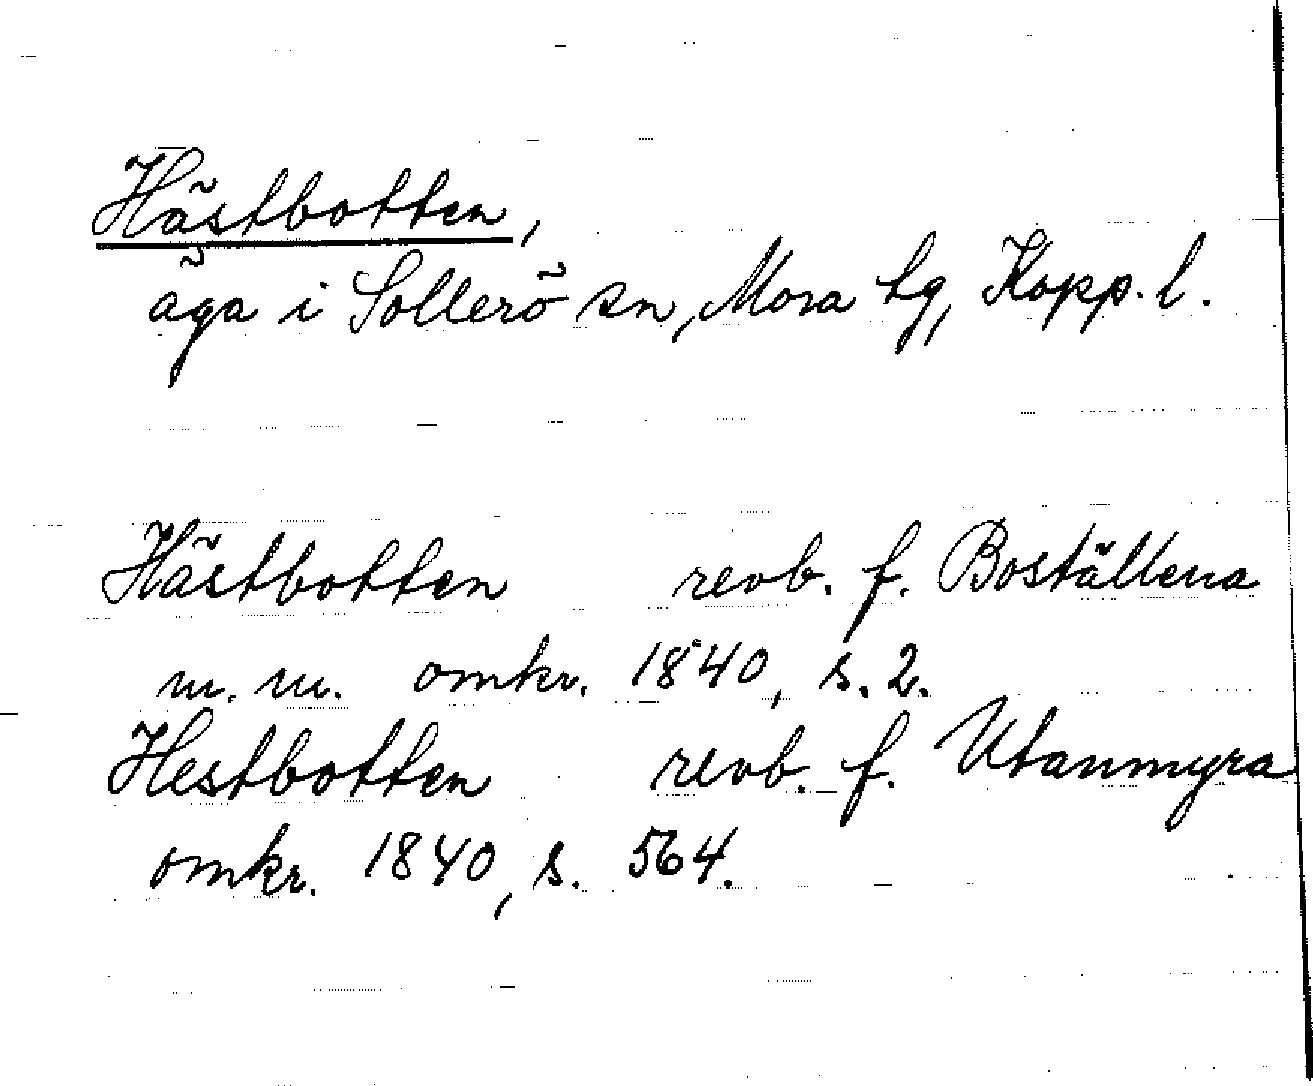 Hästbotten,
äga i Sollerö sn, Mora tg, Kopp. l.
Hästbotten revb. f. Boställena
m. m. omkr. 1840, s. 2.
Hestbotten revb. f. Utanmyra
omkr. 1840, s. 564.